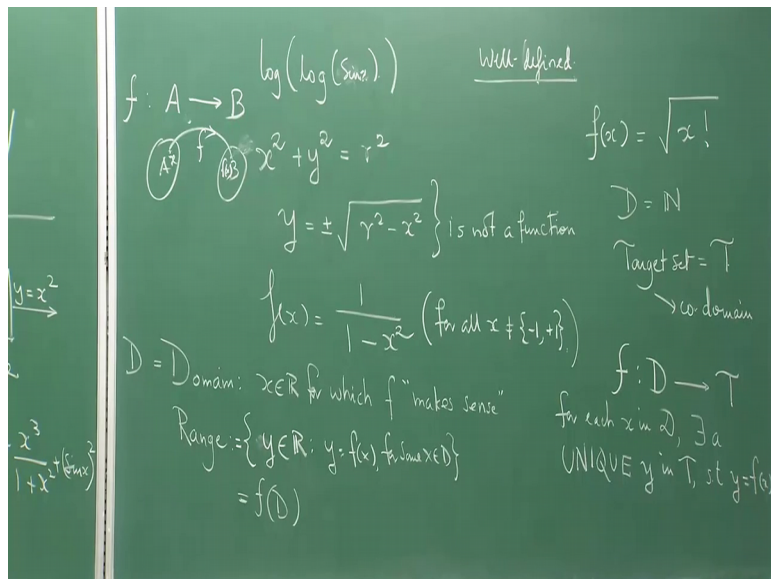 y = x²
x³
1 + x² + (Sinx)²
log(log(Sinx))
f : A → B
A x f f(x) B
x² + y² = r²
y = ±√(r² − x²) } is not a function
f(x) = 1 / (1 − x²) (for all x ≠ {-1, +1})
D = Domain: x∈ℝ for which f "makes sense"
Range := { y∈ℝ : y = f(x), for some x∈D }
= f(D)
Well-defined
f(x) = √(x!)
D = ℕ
Target set = T
↘ co-domain
f : D → T
for each x in D, ∃ a
UNIQUE y in T, s.t y = f(x)